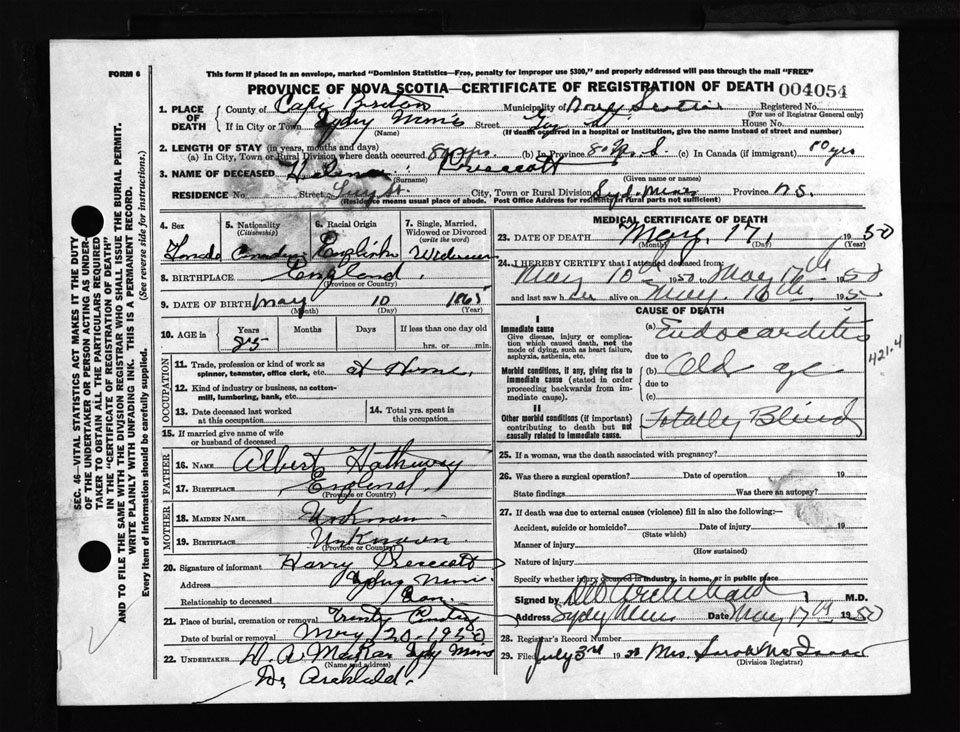 FORM 6
This form if placed in an envelope, marked "Dominion Statistics—Free, penalty for improper use $300," and properly addressed will pass through the mail "FREE"
PROVINCE OF NOVA SCOTIA—CERTIFICATE OF REGISTRATION OF DEATH 004054
1. PLACE OF DEATH
County of Cape Breton Municipality of Nova Scotia Registered No.
(For use of Registrar General only)
If in City or Town Sydney Mines Street House No.
(Name) (If death occurred in a hospital or institution, give the name instead of street and number)
2. LENGTH OF STAY (in years, months and days)
(a) In City, Town or Rural Division where death occurred 80 yrs. (b) In Province 80 yrs. (c) In Canada (if immigrant) 80 yrs
3. NAME OF DECEASED Prescott
(Surname) (Given name or names)
RESIDENCE No. Street City, Town or Rural Division Syd. Mines Province N.S.
(Residence means usual place of abode. Post Office Address for residents in rural parts not sufficient)
4. Sex
5. Nationality (Citizenship)
6. Racial Origin
7. Single, Married, Widowed or Divorced (write the word)
Female Canadian English Widow
8. BIRTHPLACE England
(Province or Country)
9. DATE OF BIRTH May 10 1865
(Month) (Day) (Year)
10. AGE in Years Months Days If less than one day old
85 hrs. or min.
OCCUPATION
11. Trade, profession or kind of work as spinner, teamster, office clerk, etc. at Home
12. Kind of industry or business, as cotton-mill, lumbering, bank, etc.
13. Date deceased last worked at this occupation
14. Total yrs. spent in this occupation
15. If married give name of wife or husband of deceased
FATHER
16. NAME Albert Hathaway
17. BIRTHPLACE England
(Province or Country)
MOTHER
18. MAIDEN NAME Unknown
19. BIRTHPLACE Unknown
(Province or Country)
20. Signature of informant Harry Prescott
Address Sydney Mines
Relationship to deceased Son
21. Place of burial, cremation or removal Trinity Cemetery
Date of burial or removal May 20-1950
22. UNDERTAKER W. A. Syd Mines
(Name and address)
Dr Archibald.
MEDICAL CERTIFICATE OF DEATH
23. DATE OF DEATH May, 17, 1950
(Month) (Day) (Year)
24. I HEREBY CERTIFY that I attended deceased from
May 10th 1950 May 17th 1950
and last saw her alive on May. 16th, 195
CAUSE OF DEATH
I
Immediate cause
Give disease, injury or complication which caused death, not the mode of dying, such as heart failure, asphyxia, asthenia, etc.
(a) Endocarditis
due to
421.4
Morbid conditions, if any, giving rise to immediate cause (stated in order proceeding backwards from immediate cause).
(b) Old age
due to
(c)
II
Other morbid conditions (if important) contributing to death but not causally related to immediate cause.
Totally Blind
25. If a woman, was the death associated with pregnancy?
26. Was there a surgical operation? Date of operation 19
State findings Was there an autopsy?
27. If death was due to external causes (violence) fill in also the following:—
Accident, suicide or homicide? Date of injury 19
(State which)
Manner of injury
(How sustained)
Nature of injury
Specify whether injury occurred in industry, in home, or in public place
Signed by Archibald M.D.
Address Sydney Mines Date May 17th 1950
28. Registrar's Record Number
29. Filed July 3rd 1950 Mrs. Sarah
(Division Registrar)
SEC. 46—VITAL STATISTICS ACT MAKES IT THE DUTY OF THE UNDERTAKER OR PERSON ACTING AS UNDERTAKER TO OBTAIN ALL THE PARTICULARS REQUIRED IN THE "CERTIFICATE OF REGISTRATION OF DEATH" AND TO FILE THE SAME WITH THE DIVISION REGISTRAR WHO SHALL ISSUE THE BURIAL PERMIT.
WRITE PLAINLY WITH UNFADING INK. THIS IS A PERMANENT RECORD.
Every item of Information should be carefully supplied. (See reverse side for instructions.)